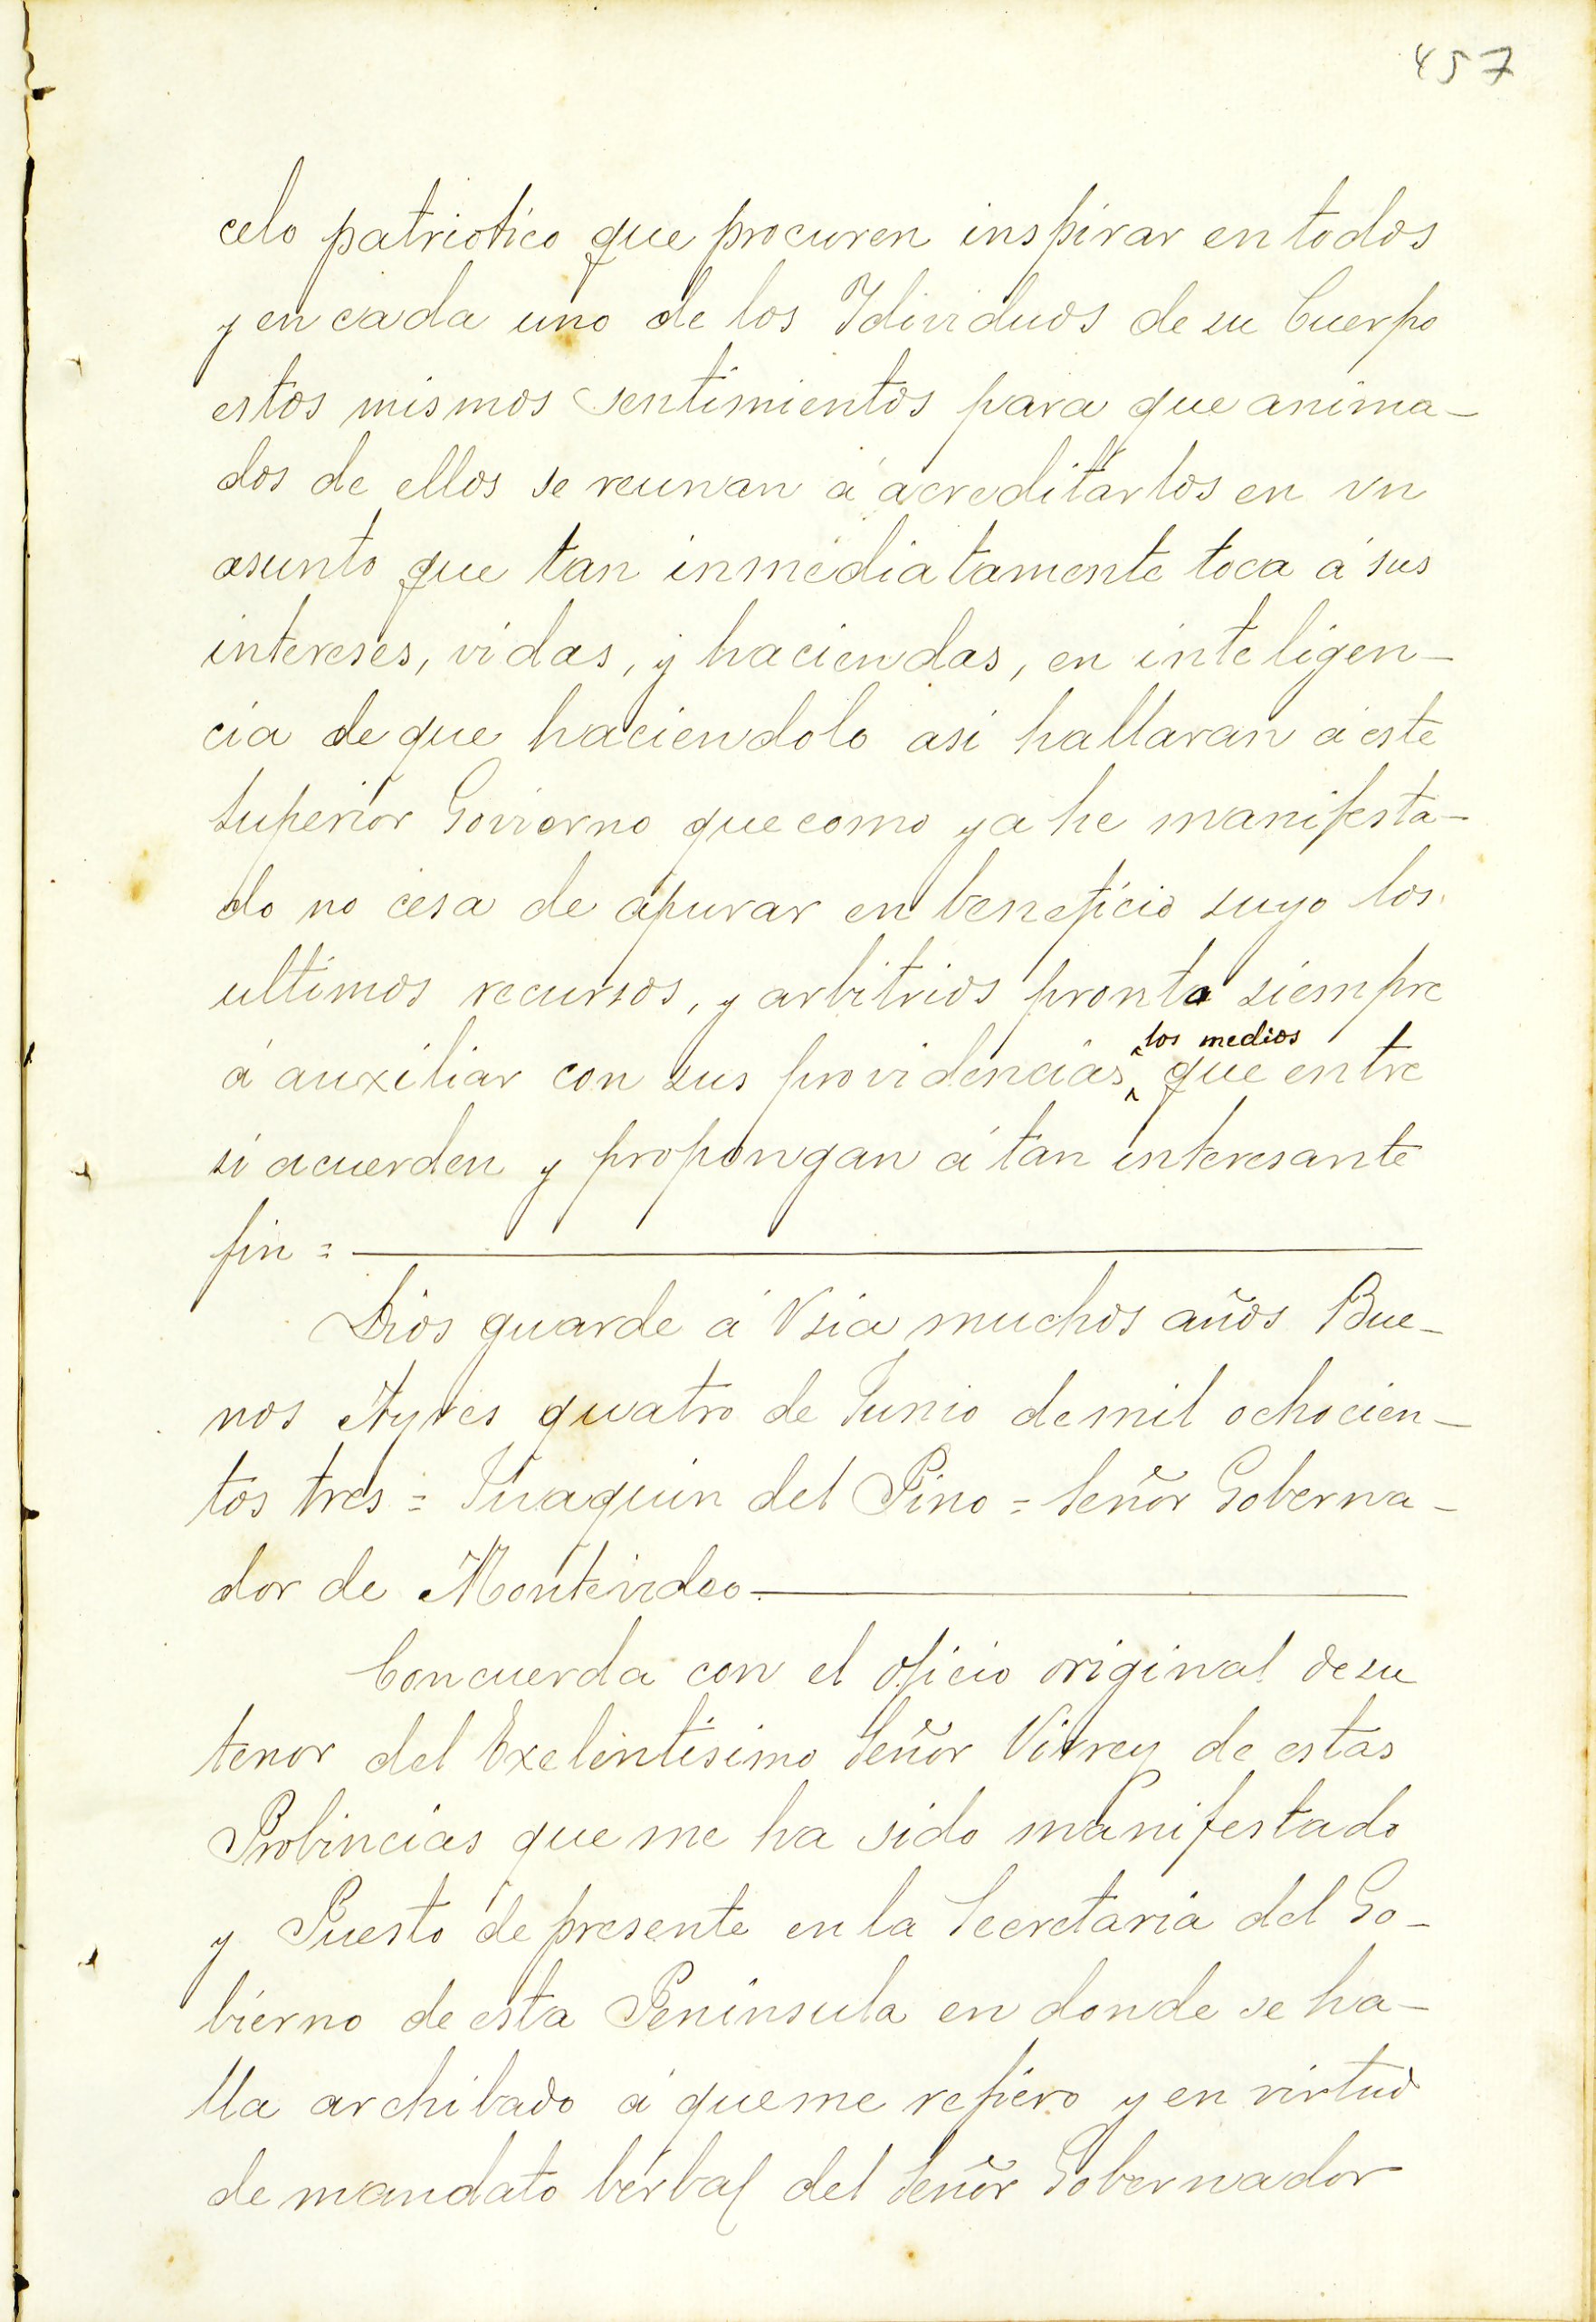 457
celo patriotico que procuren inspirar en todos
y en cada uno de los Ydividuos de su Cuerpo
estos mismos sentimientos para que anima-
dos de ellos se reunan á acreditarlos en vn
asunto que tan inmediatamente toca á sus
intereses, vidas, y haciendas, en inteligen-
cia de que haciendolo asi hallaran á este
Superior Govierno que como ya he manifesta-
do no cesa de apurar en beneficio suyo los
ultimos recursos, y arbitrios pronto siempre
los medios
á auxiliar con sus providencias, que entre
si acuerden y propongan á tan interesante
fin =
Dios guarde á Vsia muchos años Bue-
nos Ayres quatro de Junio de mil ochocien-
tos tres = Juaquin del Pino = Señor Goberna-
dor de Montevideo
Concuerda con el oficio original de su
tenor del Exelentisimo Señor Virrey de estas
Probincias que me ha sido manifestado
y Puesto de presente en la Secretaria del Go-
bierno de esta Peninsula en donde se ha-
lla archibado á que me refiero y en virtud
de mandato berbal del Señor Gobernador